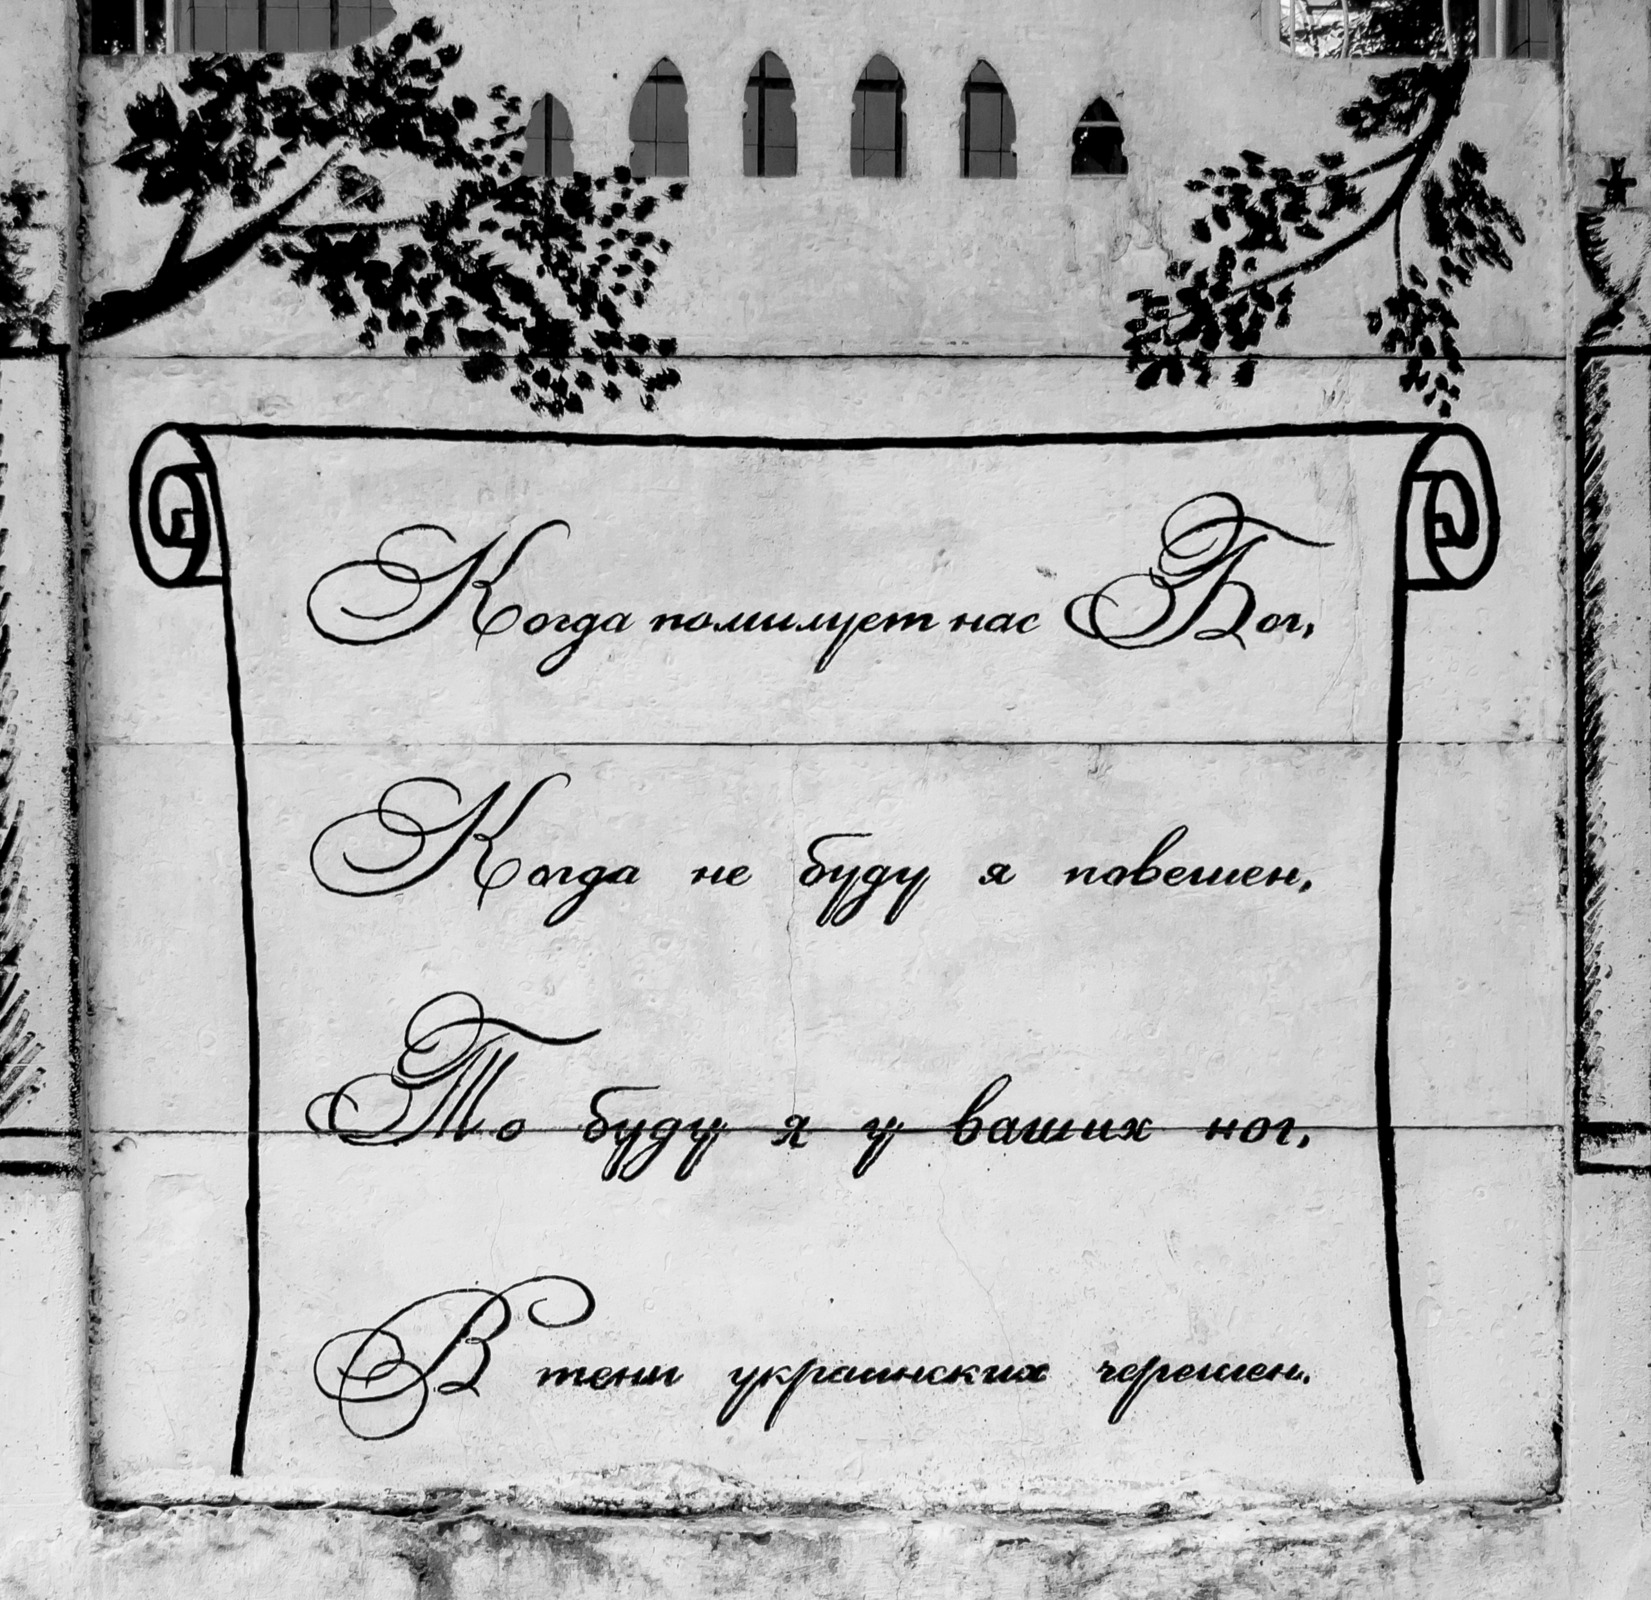 Когда помилует нас Бог,
Когда не буду я повешен,
То буду я у ваших ног,
В тени украинских черешен.